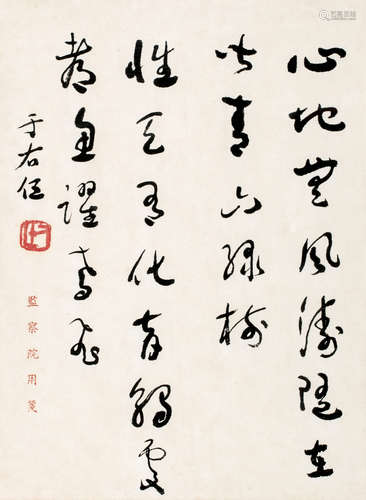 心地無風濤隨在
皆青山綠樹
性天有化育觸處
都魚躍鳶飛
于右任
監察院用箋